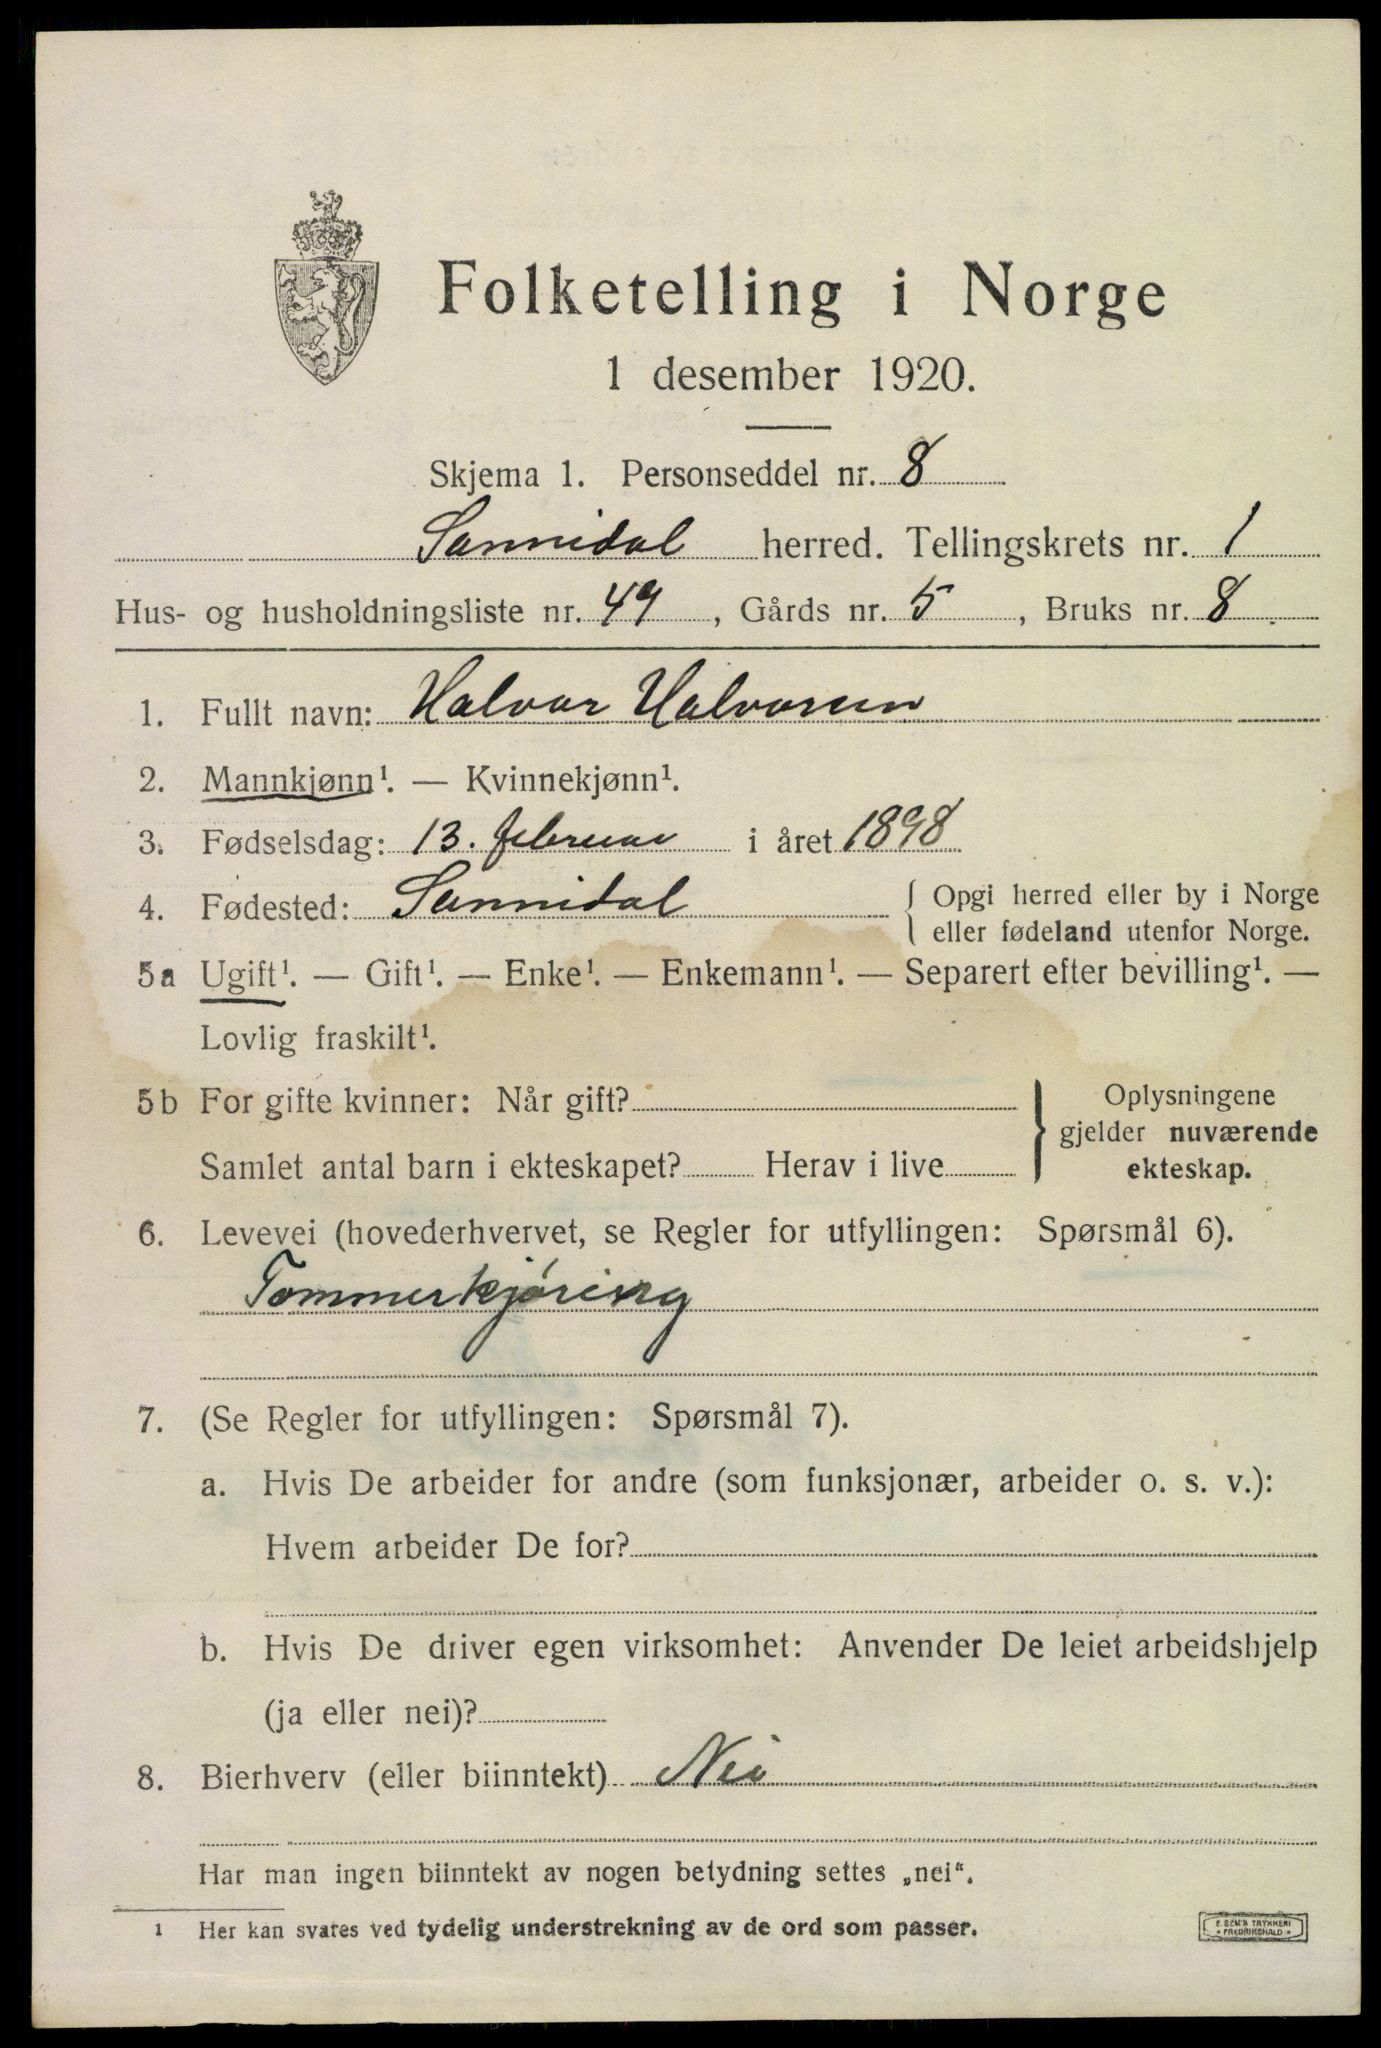 Folketelling i Norge
1 desember 1920.
Skjema 1. Personseddel nr. 8
Sannidal herred. Tellingskrets nr. 1
Hus- og husholdningsliste nr. 49, Gårds nr. 5, Bruks nr. 8.
1. Fullt navn: Halvor Halvorsen
2. Mannkjønn¹. — Kvinnekjønn¹.
3. Fødselsdag: 13. februar i året 1898
4. Fødested: Sannidal { Opgi herred eller by i Norge
eller fødeland utenfor Norge.
5a Ugift¹. — Gift¹. — Enke¹. — Enkemann¹. — Separert efter bevilling¹. —
Lovlig fraskilt¹.
5b For gifte kvinner: Når gift?
Samlet antal barn i ekteskapet? Herav i live
} Oplysningene
gjelder nuværende
ekteskap.
6. Levevei (hovederhvervet, se Regler for utfyllingen: Spørsmål 6).
Tømmerkjøring
7. (Se Regler for utfyllingen: Spørsmål 7).
a. Hvis De arbeider for andre (som funksjonær, arbeider o. s. v.):
Hvem arbeider De for?
b. Hvis De driver egen virksomhet: Anvender De leiet arbeidshjelp
(ja eller nei)?
8. Bierhverv (eller biinntekt) Nei
Har man ingen biinntekt av nogen betydning settes „nei“.
¹ Her kan svares ved tydelig understrekning av de ord som passer.
E. SEM'S TRYKKERI
* FREDRIKSHALD *